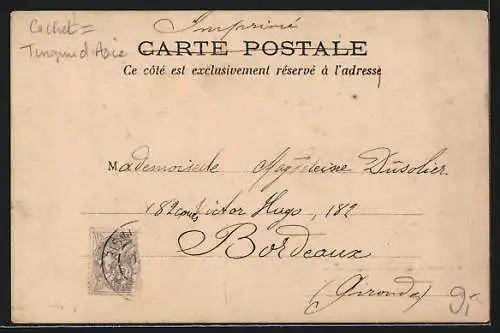 Cachet =
Turquie d'Asie
Imprimé
CARTE POSTALE
Ce côté est exclusivement réservé à l'adresse
Mademoiselle Magdeleine Dusolier
182 cours Victor Hugo, 182
Bordeaux
(Gironde)
9.-